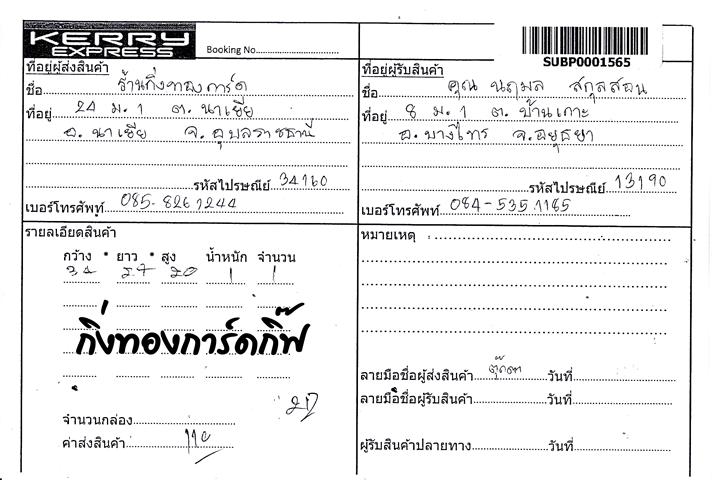 KERRY
EXPRESS
Booking No.
SUBP0001565
ที่อยู่ผู้ส่งสินค้า
ชื่อ ร้านกิ่งทองการ์ด
ที่อยู่ 24 ม.1 ต.นาเยีย
อ.นาเยีย จ.อุบลราชธานี
รหัสไปรษณีย์ 34160
เบอร์โทรศัพท์ 085-8261244
ที่อยู่ผู้รับสินค้า
ชื่อ คุณ นฤมล สกุลสอน
ที่อยู่ 8 ม.1 ต.บ้านเกาะ
อ.บางไทร จ.อยุธยา
รหัสไปรษณีย์ 13190
เบอร์โทรศัพท์ 084-535 1185
รายละเอียดสินค้า
กว้าง * ยาว * สูง น้ำหนัก จำนวน
34 27 20 1 1
กิ่งทองการ์ดกิ๊ฟ
จำนวนกล่อง
ค่าส่งสินค้า 110
หมายเหตุ :
ลายมือชื่อผู้ส่งสินค้า ตุ๊กตา วันที่
ลายมือชื่อผู้รับสินค้า วันที่
ผู้รับสินค้าปลายทาง วันที่